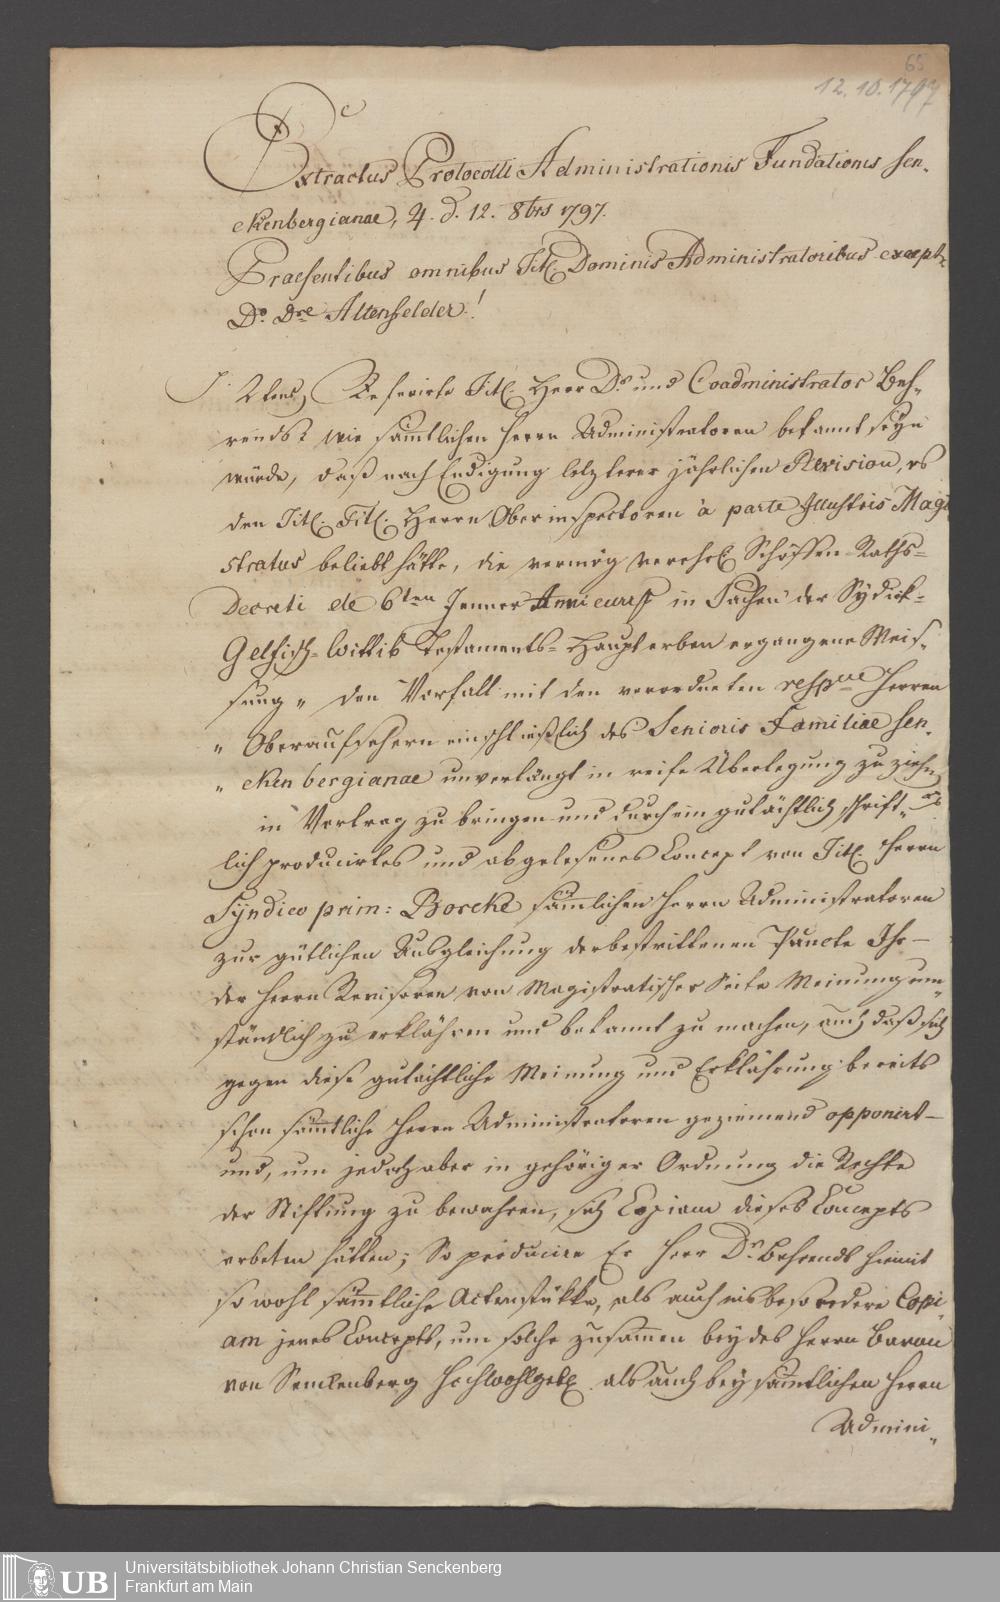 65
12.10.1797
Extractus Protocolli Administrationis Fundationis Sen„
ckenbergianae, 4. d. 12. 8brs 1797.
Praesentibus omnibus Titl. Dominis Administratoribus except„
Do. Dre Altenfelder!
2tens, Referirte Titl. Herr Dr und Coadministrator Beh„
rends: wie sämtlichen Herrn Administratoren bekannt seyn
würde, daß nach Endigung letzterer jährlichen Revision, es
den Titl. Titl. Herrn Oberinspectoren à parte Illustris Magi
stratus beliebt hätte, die vermög verehrl Schöffen-Raths-
Decreti de 6ten Jenner Anni curr in Sachen der Sydick-
Gelfisch-Wittib Testaments-Haupterben ergangene Weis„
sung „ den Vorfall mit den verordneten respve Herren
„ Oberaufsehern einschließlich des Senioris Familiae Sen„
„ ckenbergianae unverlängt in reife Überlegung zu ziehn„
in Vortrag zu bringen und durch ein gutächtlich schrift„
lich producirtes und abgelesenes Concept von Titl. Herrn
Syndico prim: Borcke sämtlichen Herrn Administratoren
zur gütlichen Ausgleichung der bestrittenen Puncte Ihr-
der Herrn Revisoren von Magistratischer Seite Meinung um„
ständlich zu erklähren und bekannt zu machen, auch daß sich
gegen diese gutächtliche Meinung und Erklährung bereits
schon sämtliche Herrn Administratoren geziemend opponirt-
und, um jedoch aber in gehöriger Ordnung die Rechte
der Stiftung zu bewahren, sich Copiam dieses Concepts
erbeten hätten; So producire Er Herr Dr. Behrends hiemit
sowohl sämtliche Actenstükke, als auch insbesondere Copi„
am jenes Concepts, um solche zusamen bey des Herrn Baron
von Senckenberg Hochwohlgeb als auch bey sämtlichen Herrn
Admini„
Universitätsbibliothek Johann Christian Senckenberg
Frankfurt am Main
UB